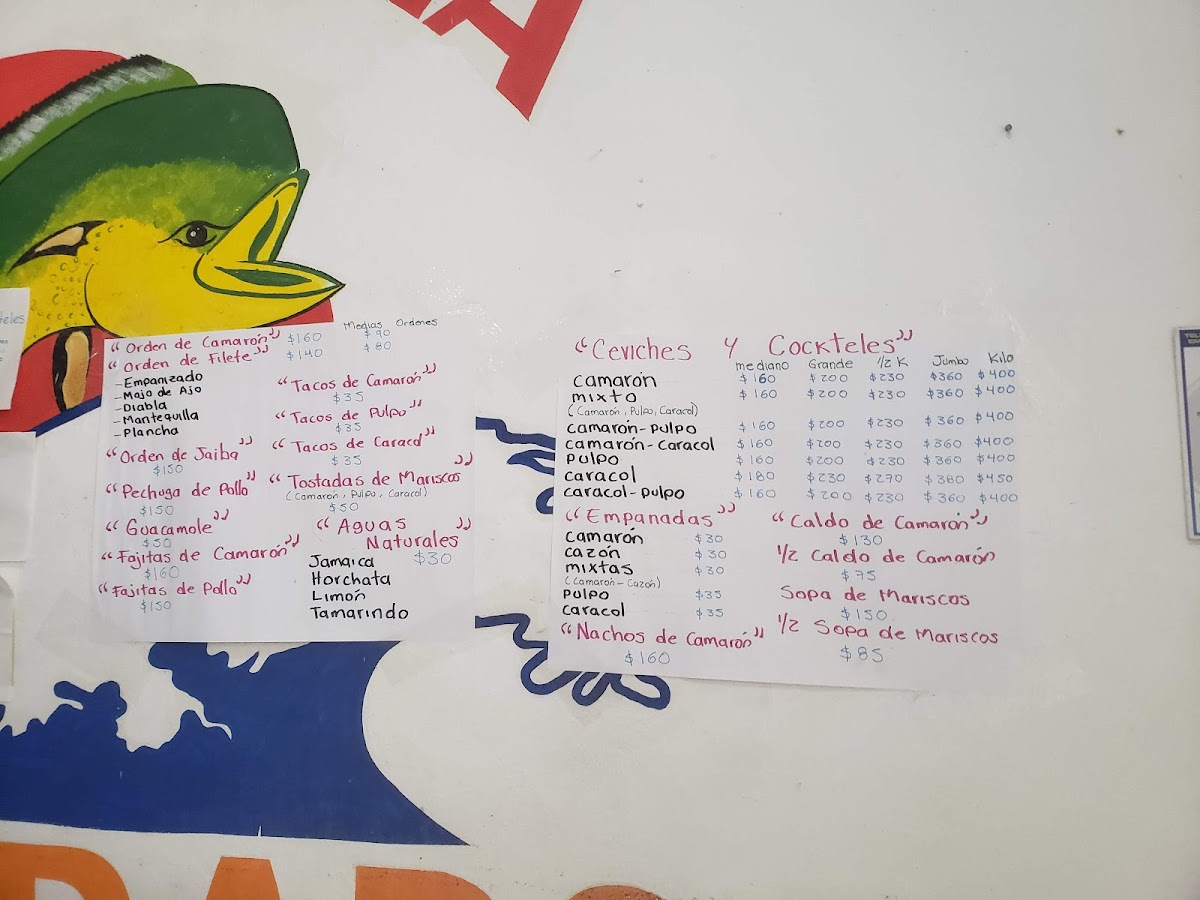 A
teles
Medias Ordenes
"Orden de Camarón" $160 $90
"Orden de Filete" $140 $80
-Empanizado
-Mojo de Ajo
-Diabla
-Mantequilla
-Plancha
"Orden de Jaiba"
$150
"Pechuga de Pollo"
$150
"Guacamole"
$50
"Fajitas de Camarón"
$160
"Fajitas de Pollo"
$150
"Tacos de Camarón"
$35
"Tacos de Pulpo"
$35
"Tacos de Caracol"
$35
"Tostadas de Mariscos"
(Camarón, Pulpo, Caracol)
$50
"Aguas
Naturales"
Jamaica $30
Horchata
Limón
Tamarindo
"Ceviches y Cockteles"
mediano Grande 1/2 K Jumbo Kilo
camarón $160 $200 $230 $360 $400
mixto $160 $200 $230 $360 $400
(Camarón, Pulpo, Caracol)
camarón-pulpo $160 $200 $230 $360 $400
camarón-caracol $160 $200 $230 $360 $400
pulpo $160 $200 $230 $360 $400
caracol $180 $230 $270 $380 $450
caracol-pulpo $160 $200 $230 $360 $400
"Empanadas"
camarón $30
cazón $30
mixtas $30
(Camarón-Cazón)
pulpo $35
caracol $35
"Nachos de Camarón"
$160
"Caldo de Camarón"
$130
1/2 Caldo de Camarón
$75
Sopa de Mariscos
$150
1/2 Sopa de Mariscos
$85